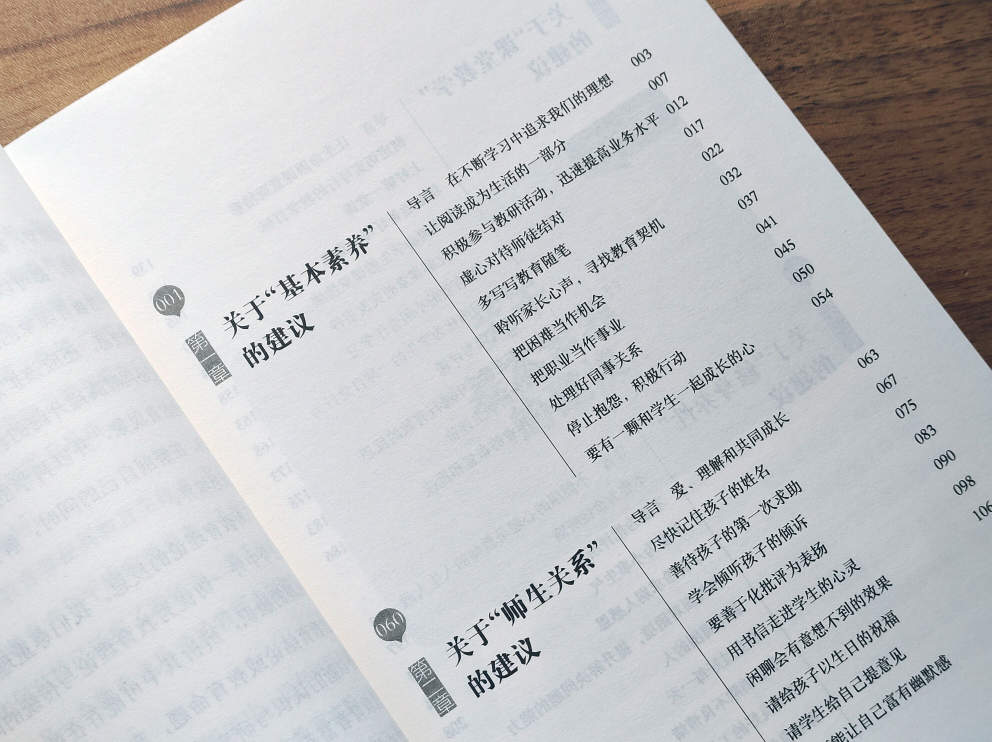 001
第一章
关于“基本素养”
的建议
导言 在不断学习中追求我们的理想 003
让阅读成为生活的一部分 007
积极参与教研活动，迅速提高业务水平 012
虚心对待师徒结对 017
多写写教育随笔 022
聆听家长心声，寻找教育契机 032
把困难当作机会 037
把职业当作事业 041
处理好同事关系 045
停止抱怨，积极行动 050
要有一颗和学生一起成长的心 054
060
第二章
关于“师生关系”
的建议
导言 爱、理解和共同成长 063
尽快记住孩子的姓名 067
善待孩子的第一次求助 075
学会倾听孩子的倾诉 083
要善于化批评为表扬 090
用书信走进学生的心灵 098
闲聊会有意想不到的效果 106
请给孩子以生日的祝福
请学生给自己提意见
能让自己富有幽默感